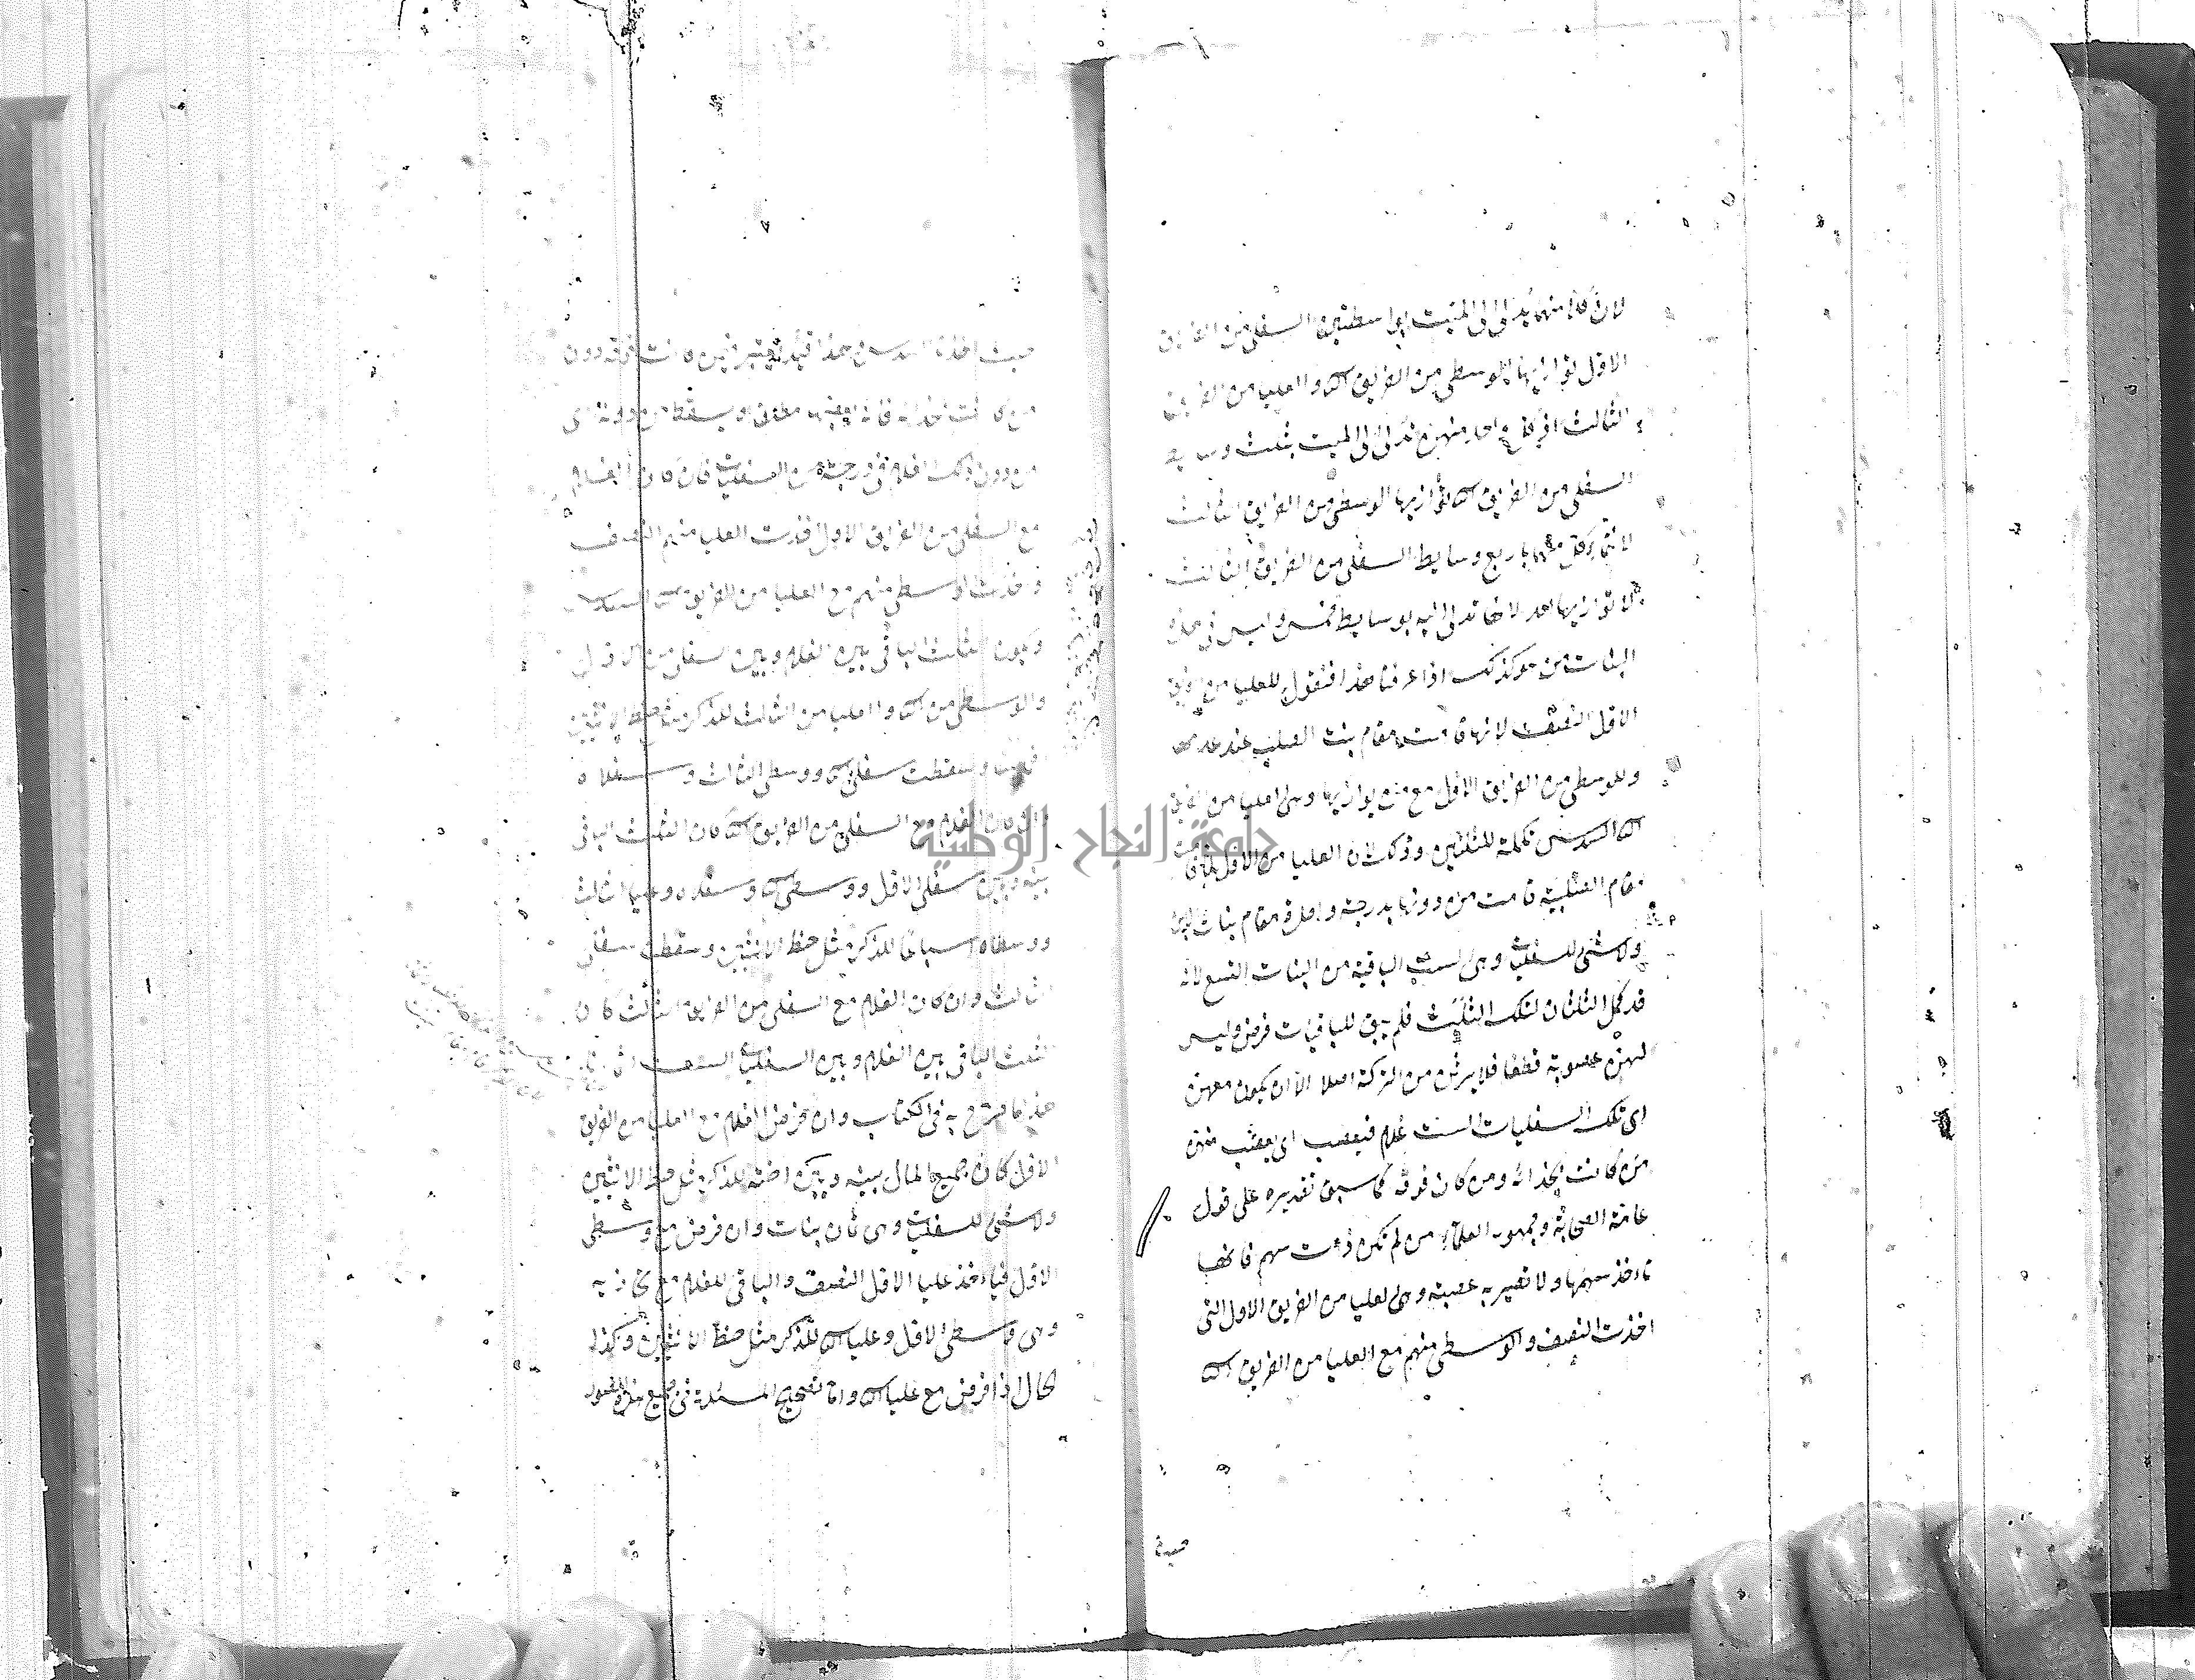 لان كلا منهما يدلى الى الميت بواسطتين السفلى من الفريق
الاول توازيها الوسطى من الفريق الثا والعليا من الفريق
الثالث اذ كل واحد منهن تدلى الى الميت بثلث وسايط
السفلى من الفريق الثا توازيها الوسطى من الفريق الثالث
باربع وسايط السفلى من الفريق الثالث
لا توازيها احد لانها تدلى اليه بوسايط خمس وليس فى هذه
البنات من هو كذلك اذا عرفنا هذا فنقول للعليا من الفريق
الاول النصف لانها قامت مقام بنت الصلب عند عدمها
وللوسطى من الفريق الاول مع من يوازيها وهى العليا من الفريق
الثا السدس تكملة للثلثين وذلك لان العليا من الاول لما قامت
مقام الصلبية قامت من دونها بدرجة واحدة مقام بنات الابن
ولا شئ للسفليات وهى الست الباقية من البنات التسع لانه
قد كمل الثلثان لتلك الثلث فلم يبق للباقيات فرض وليس
لهن عصوبة قطعا فلا يرثن من التركة اصلا الا ان يكون معهن
اى تلك السفليات الست غلام فيعصب اى يعصب منهن
من كانت بحذائه ومن كان فوقه كما سبق تقديره على قول
عامة الصحابة وجمهور العلماء من لم تكن ذات سهم فانها
تاخذ سهمها ولا تصير به عصبة وهى العليا من الفريق الاول التى
اخذت النصف والوسطى منهم مع العليا من الفريق الثا
حيث
حيث اخذتا السدس هذا قيد يعتبر فيمن كانت فوقه دون
من كانت بحذائه فانه يعصبه مطلقا ويسقط من دونه اى
من دون ذلك الغلام فى درجته من السفليات فان كان الغلام
مع السفلى من الفريق الاول اخذت العليا منهم النصف
واخذت الوسطى منهم مع العليا من الفريق الثا السدس
ويكون الثلث الباقى بين الغلام وبين السفلى من الاول
والوسطى من الثا والعليا من الثالث للذكر مثل حظ الانثيين
وسقطت سفلى الثا ووسطى الثالث وسفلاه
وان كان الغلام مع السفلى من الفريق الثا كان الثلث الباقى
بينه وبين سفلى الاول ووسطى الثا وسفلاه وعليا الثالث
ووسطاه للذكر مثل حظ الانثيين وسقطت سفلى
الثالث وان كان الغلام مع السفلى من الفريق الثالث كان
الثلث الباقى بين الغلام وبين السفليات الست
هذا ما صرح به فى الكتاب وان فرض الغلام مع العليا من الفريق
الاول كان جميع المال بينه وبين اخته للذكر مثل حظ الانثيين
ولا شئ للسفليات وهى ثمان بنات وان فرض مع وسطى
الاول فياخذ عليا الاول النصف والباقى للغلام مع من يحاذيه
وهى وسطى الاول وعليا الثا للذكر مثل حظ الانثيين وكذا
الحال اذا فرض مع عليا الثا واما تصحيح المسئلة فى جميع هذه الصور
جامعة النجاح الوطنية